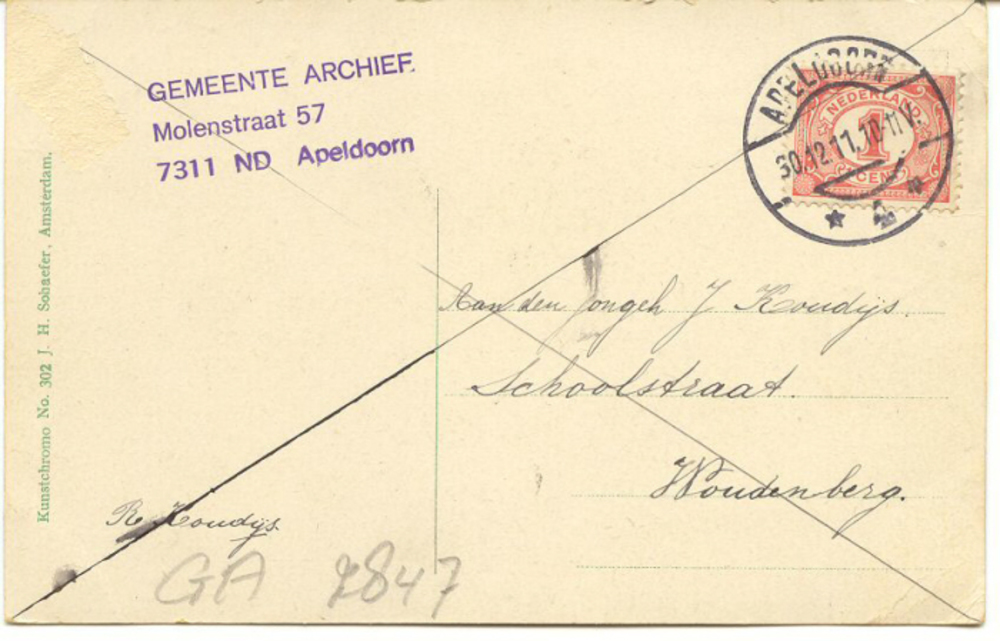 GEMEENTE ARCHIEF
Molenstraat 57
7311 ND Apeldoorn
APELDOORN
30.12.11.10-11V.
4
NEDERLAND
1
CENT
Aan den Jongeh J Koudijs.
Schoolstraat.
Woudenberg.
R Koudijs.
GA 7847
Kunstchromo No. 302 J. H. Schaefer, Amsterdam.